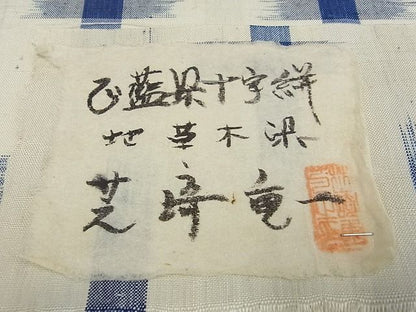 正藍染十字絣
地 草木染
芝崎重一